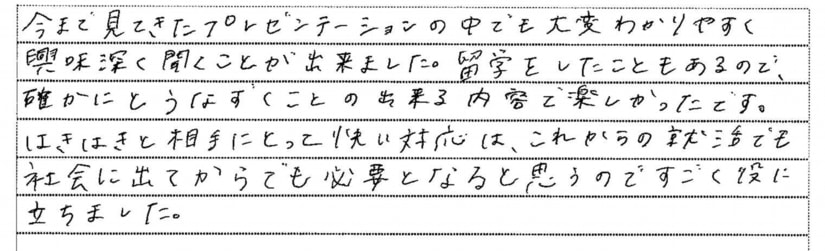 今まで見てきたプレゼンテーションの中でも大変わかりやすく
興味深く聞くことが出来ました。留学をしたこともあるので、
確かにとうなずくことの出来る内容で楽しかったです。
はきはきと相手にとって快い対応は、これからの就活でも
社会に出てからでも必要となると思うのですごく役に
立ちました。